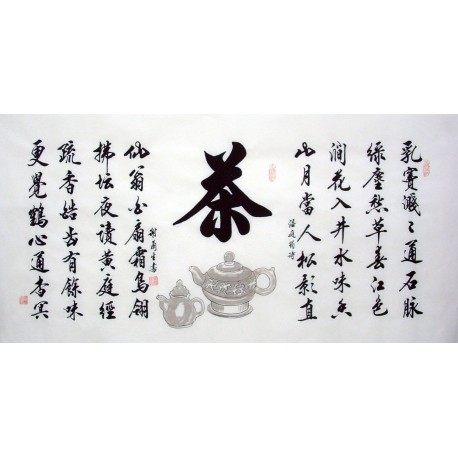 乳竇濺々通石脉
綠塵愁草春江色
澗花入井水味香
山月當人松影直
温庭筠詩
茶
仙翁白扇霜鳥翎
拂坛夜讀黄庭經
疏香皓齿有餘味
更覺鶴心通杳冥